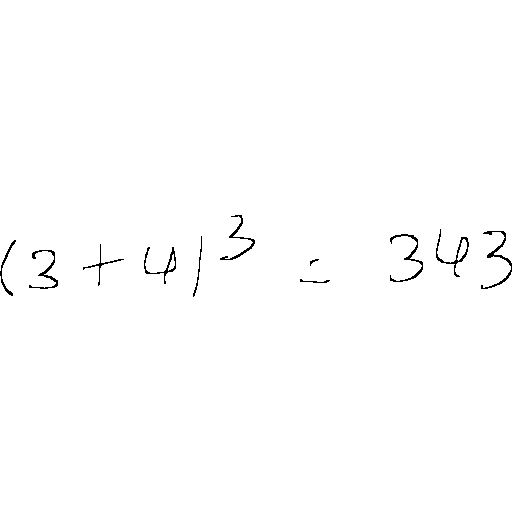 (3+4)³ = 343